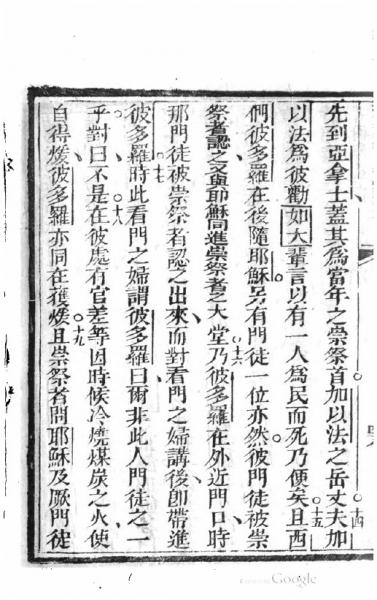 先到亞拿士蓋其爲當年之崇祭首加以法之岳丈夫加
十四
以法爲彼勸如大輩言以有一人爲民而死乃便矣且西
十五
們彼多羅在後隨耶穌另有門徒一位亦然彼門徒被崇
祭者認之又與耶穌同進崇祭者之大堂乃彼多羅在外近門口時
十六
那門徒被崇祭者認之出來而對看門之婦講後即帶進
彼多羅時此看門之婦謂彼多羅曰爾非此人門徒之一
十七
乎對曰不是在彼處有官差等因時候冷燒煤炭之火使
十八
自得煖彼多羅亦同在獲煖且崇祭者問耶穌及厥門徒
十九
Google